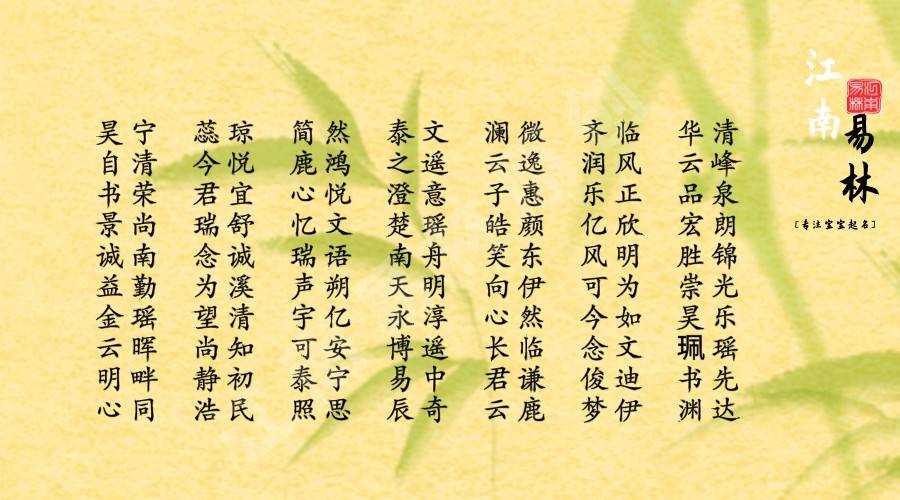 江南易林
江南易林
［专注宝宝起名］
昊宁 蕊琼 简然 泰文 澜微 齐临 华清
自清 今悦 鹿鸿 之遥 云逸 润风 云峰
书荣 君宜 心悦 澄意 子惠 乐正 品泉
景尚 瑞舒 忆文 楚瑶 皓颜 亿欣 宏朗
诚南 念诚 瑞语 南舟 笑东 风明 胜锦
益勤 为溪 声朔 天明 向伊 可为 崇光
金瑶 望清 宇亿 永淳 心然 今如 昊乐
云晖 尚知 可安 博遥 长临 念文 珮瑶
明畔 静初 泰宁 易中 君谦 俊迪 书先
心同 浩民 照思 辰奇 云鹿 梦伊 渊达